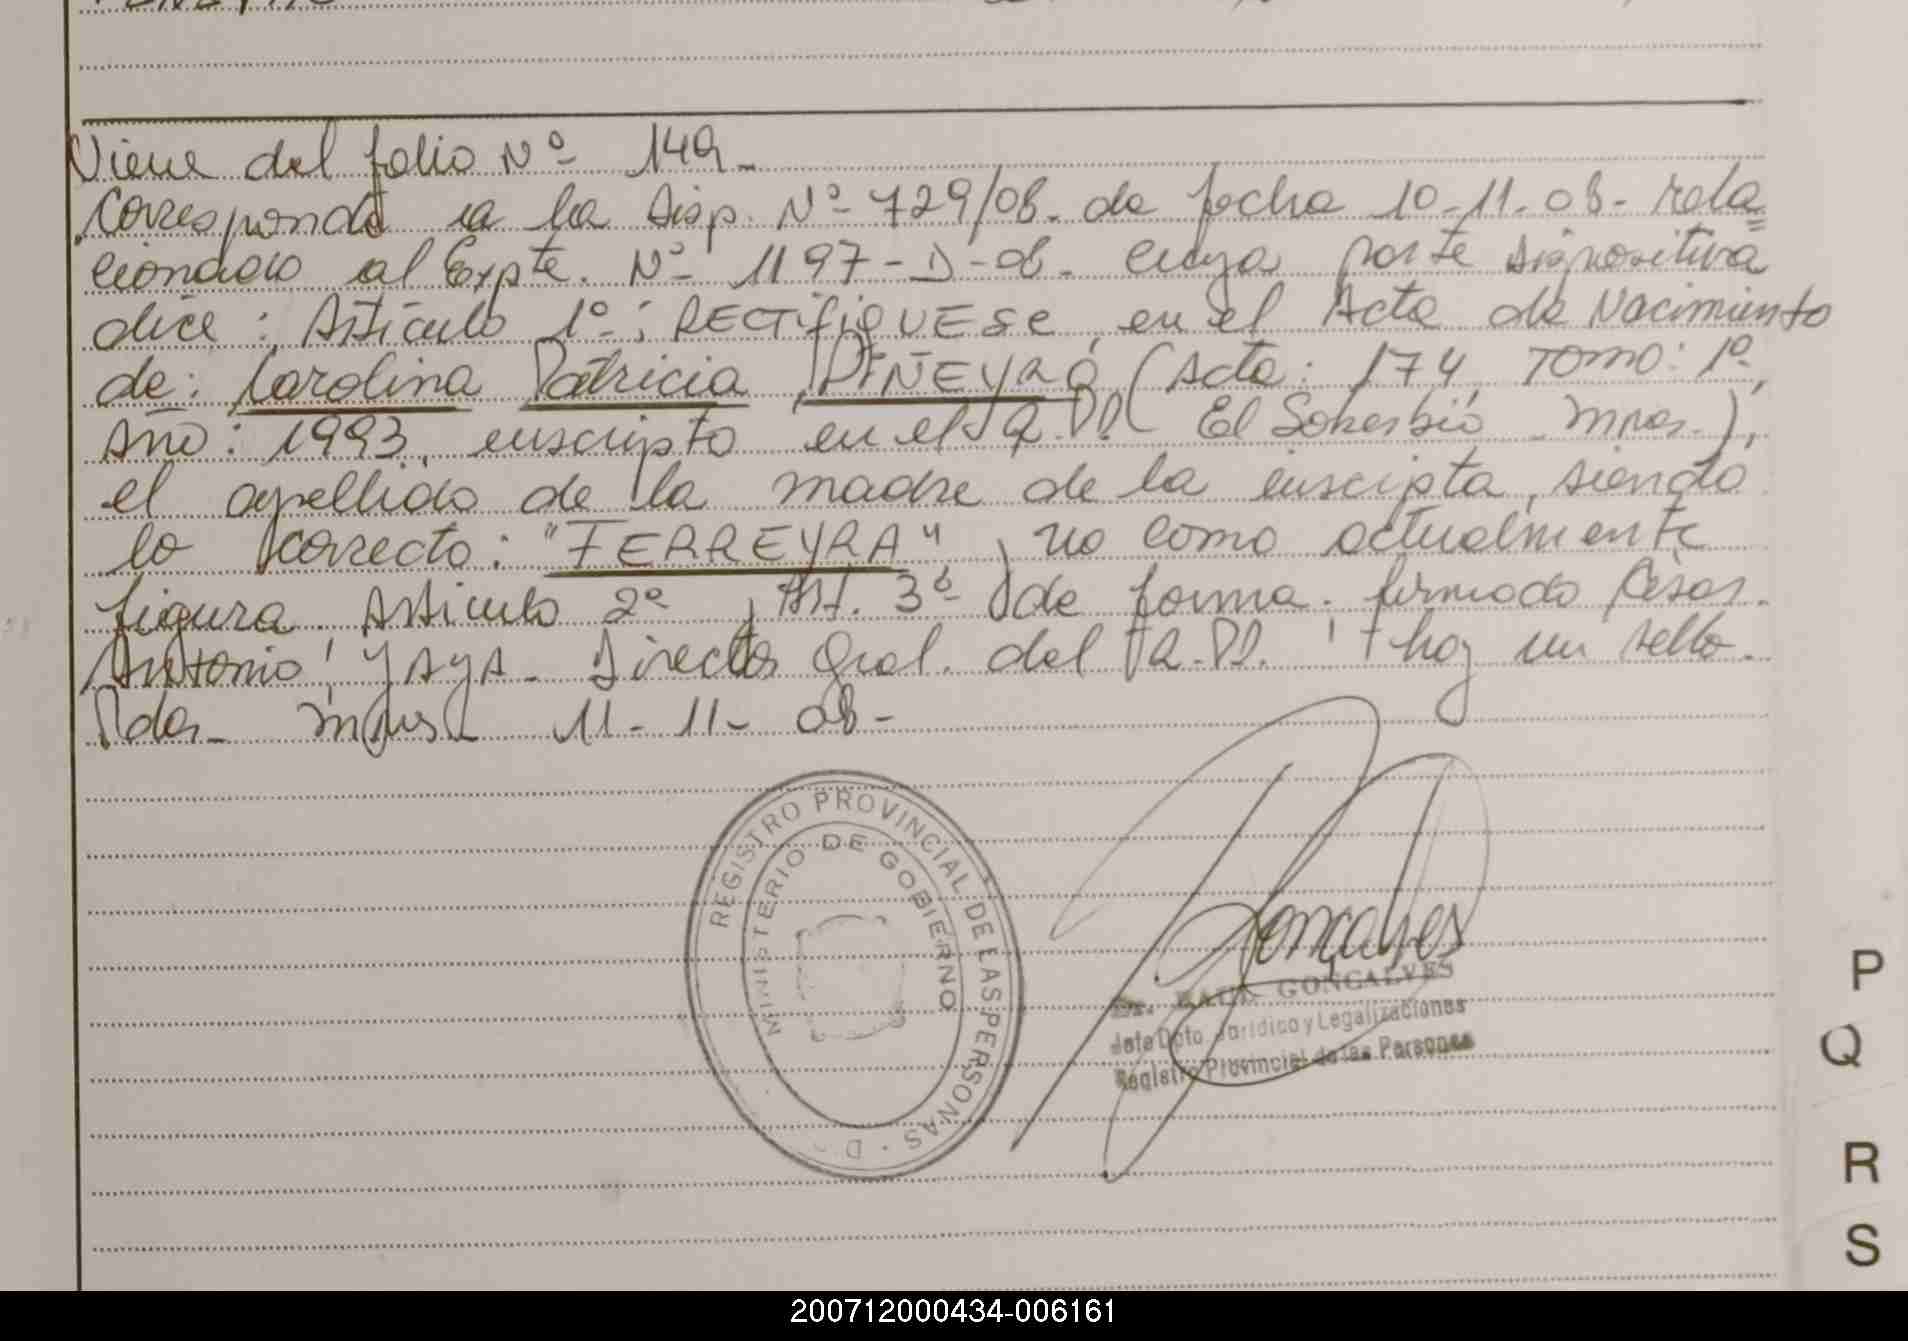 Viene del folio Nº 149-
Corresponde a la Disp. Nº 729/08. de fecha 10-11-08- rela=
cionado al Expte. Nº 1197-D-08. cuya parte dispositiva
dice: Artículo 1º: RECTIFIQUESE, en el Acta de Nacimiento
de: Carolina Patricia PIÑEYRO (Acta: 174, Tomo: 1º,
Año: 1993, inscripto en el R.P.P. (El Soberbio - Mnes.),
el apellido de la madre de la inscipta, siendo
lo correcto: "FERREYRA", no como actualmente
figura. Artículo 2º y Art. 3º de forma. firmado César
Antonio YAYA- Director Gral. del R.P.P. hay un sello.
Pdas- Mnes- 11-11-08-
REGISTRO PROVINCIAL DE LAS PERSONAS · D
MINISTERIO DE GOBIERNO
Gonçalves
GONCALVES
Jefe Dpto Jurídico y Legalizaciones
Registro Provincial de las Personas
P
Q
R
S
200712000434-006161